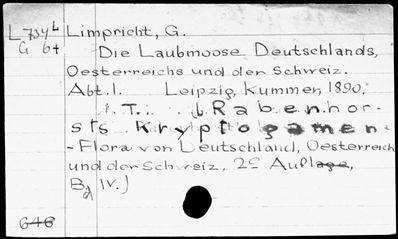 L 734 L Limpricht, G.
G 6t Die Laubmoose Deutschlands,
Oesterreichs und der Schweiz.
Abt. I. Leipzig, Kummer, 1890.
(Rabenhor-
sts Kryptogamen-
-Flora von Deutschland, Oesterreich
und der Schweiz, 2e Auflage,
Bd IV.)
646